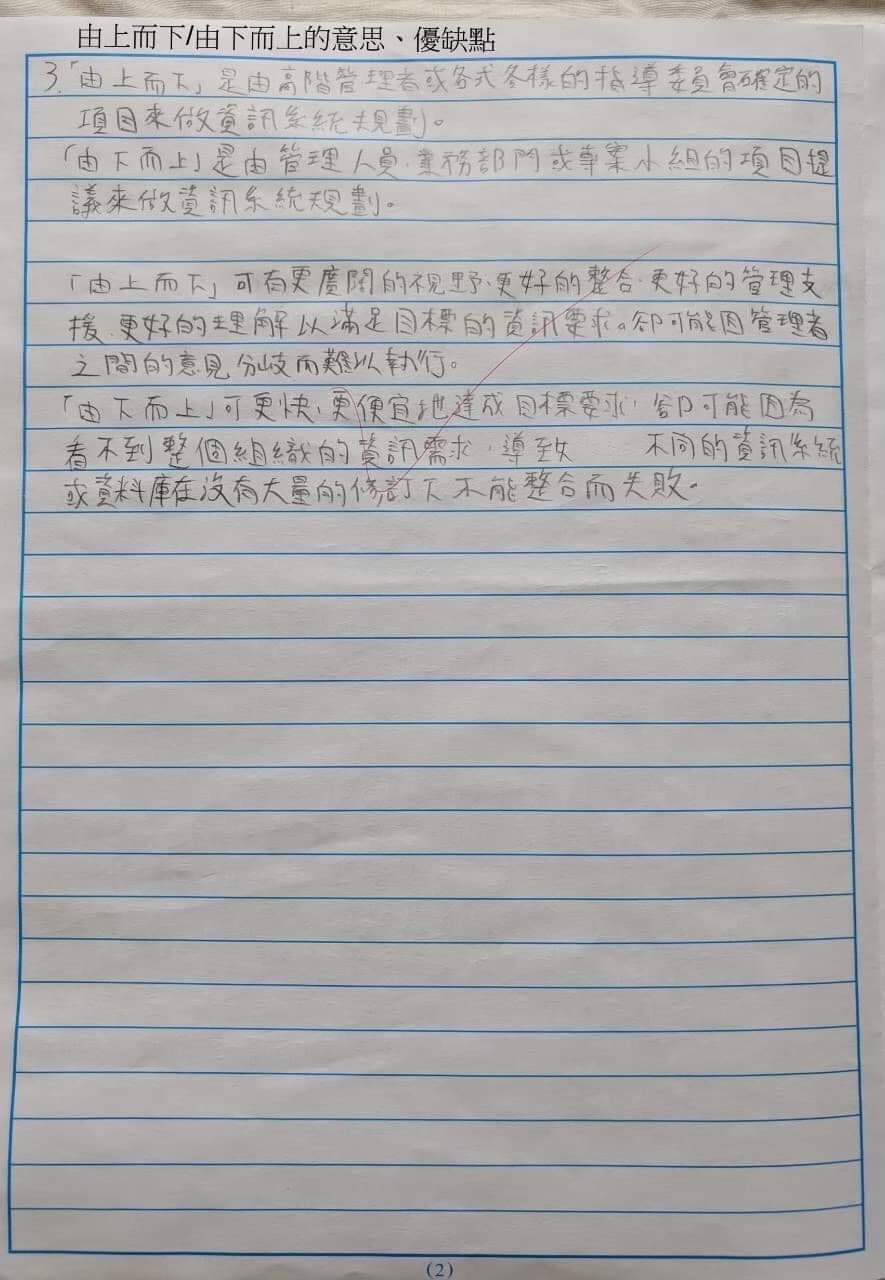 由上而下/由下而上的意思、優缺點
3.「由上而下」是由高階管理者或各式各樣的指導委員會確定的
項目來做資訊系統規劃。
「由下而上」是由管理人員、業務部門或專案小組的項目提
議來做資訊系統規劃。
「由上而下」可有更廣闊的視野、更好的整合、更好的管理支
援、更好的理解以滿足目標的資訊要求。卻可能因管理者
之間的意見分歧而難以執行。
「由下而上」可更快、更便宜地達成目標要求,卻可能因為
看不到整個組織的資訊需求,導致 不同的資訊系統
或資料庫在沒有大量的修訂下不能整合而失敗。
(2)